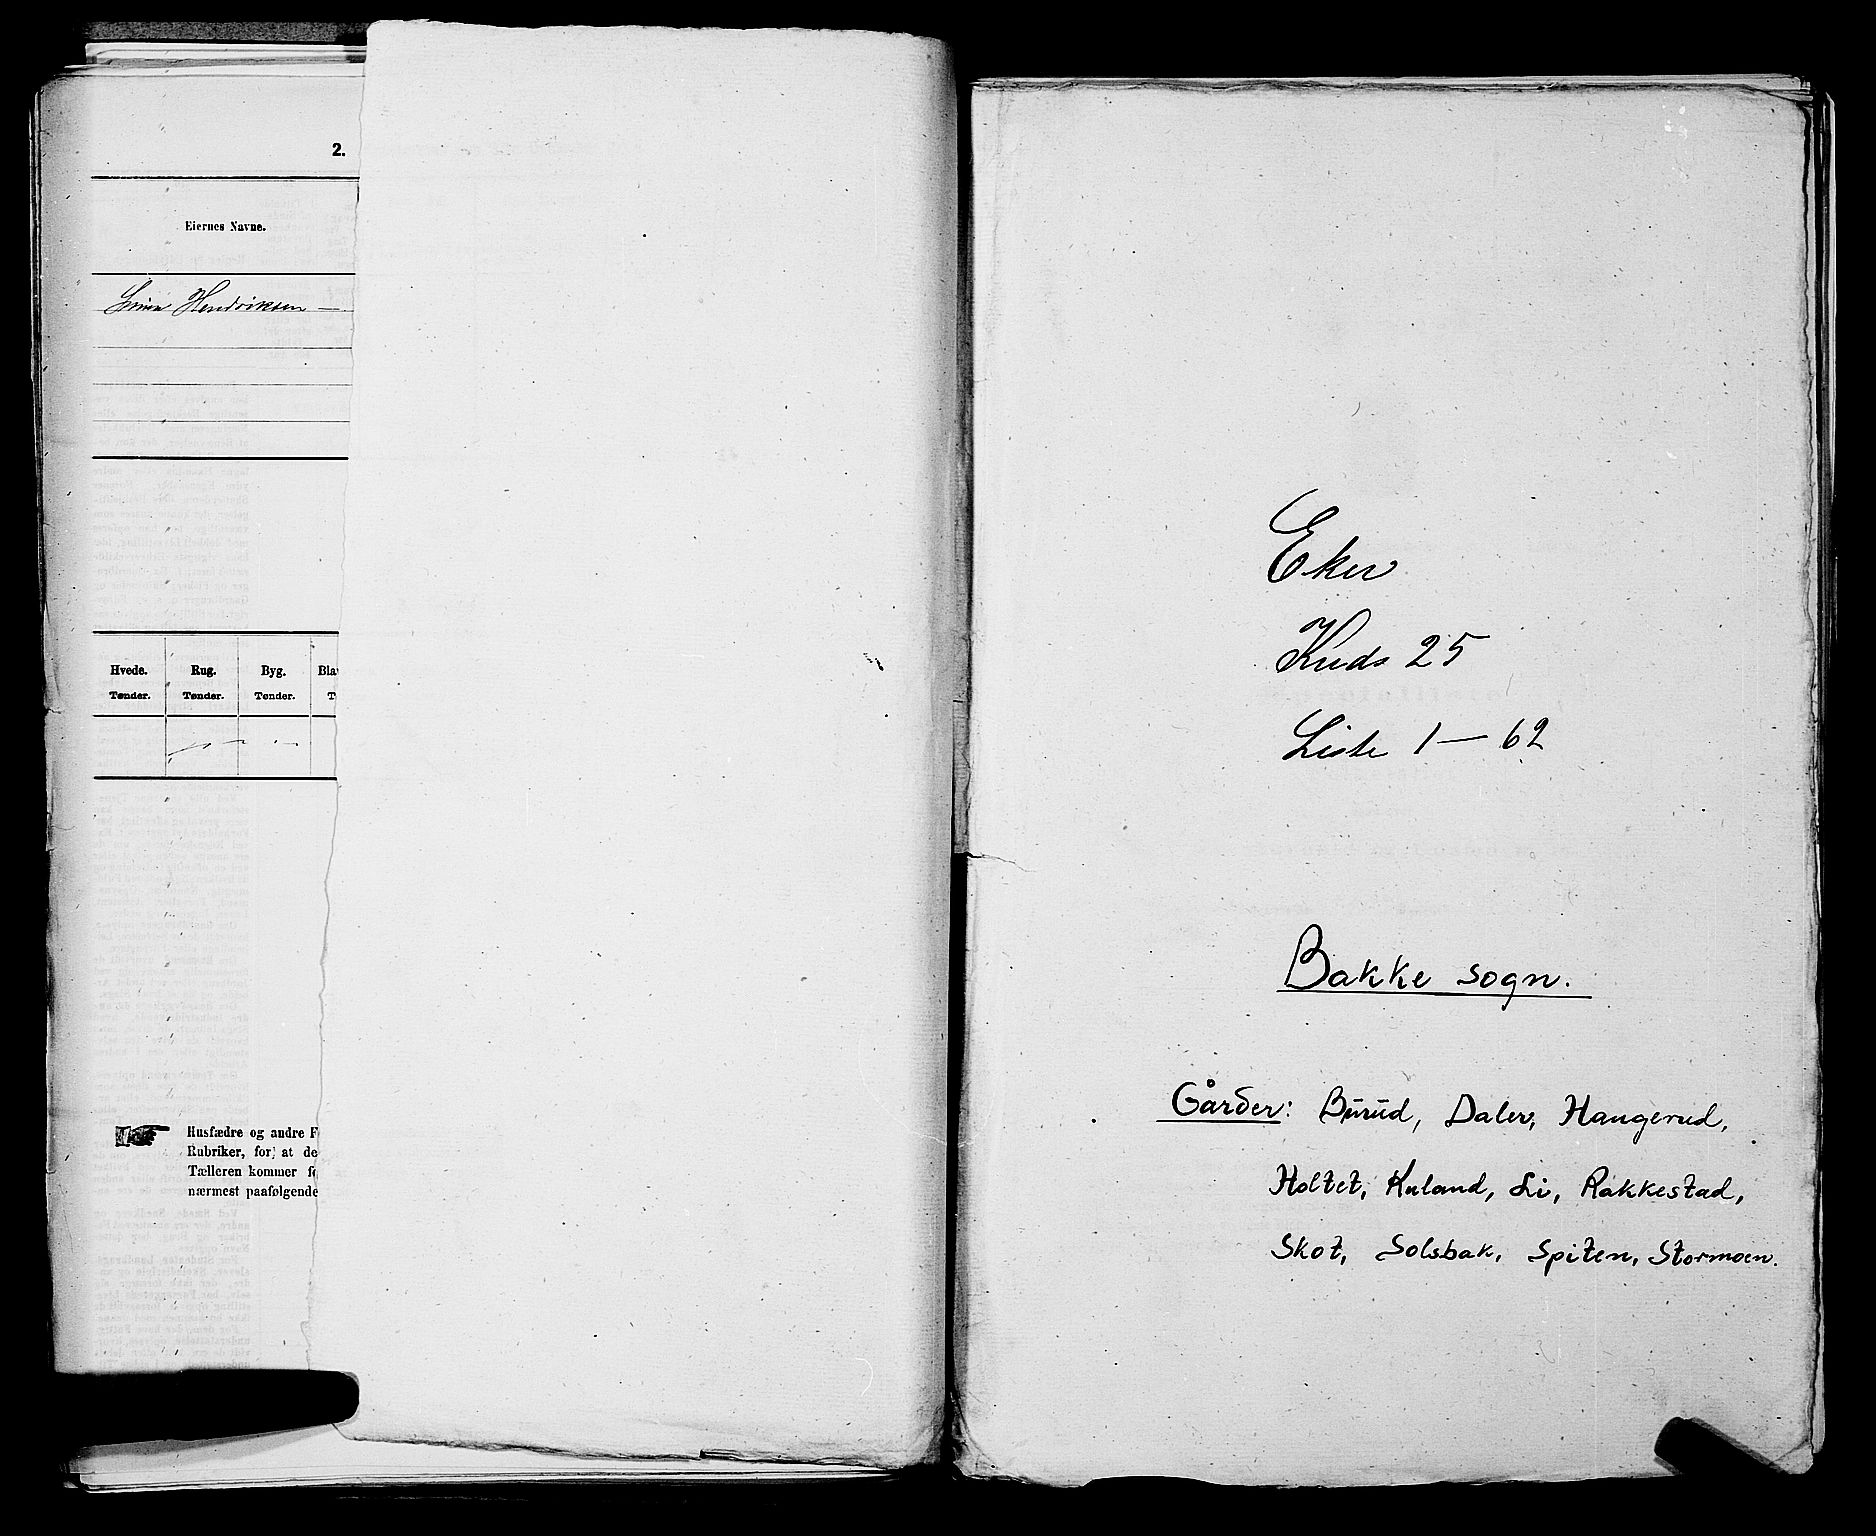 2.
Eiernes Navne.
Hendriksen —
Hvede. Rug. Byg.
Tønder. Tønder. Tønder.
Husfædre og andre F
Rubriker, for, at de
Tælleren kommer
nærmest paafølgende
Eker
Kuds 25
Liste 1 — 62
Bakke sogn.
Gårder: Burud, Daler, Haugerud,
Holtet, Kuland, Li, Rakkestad,
Skot, Solsbak, Spiten, Stormoen.